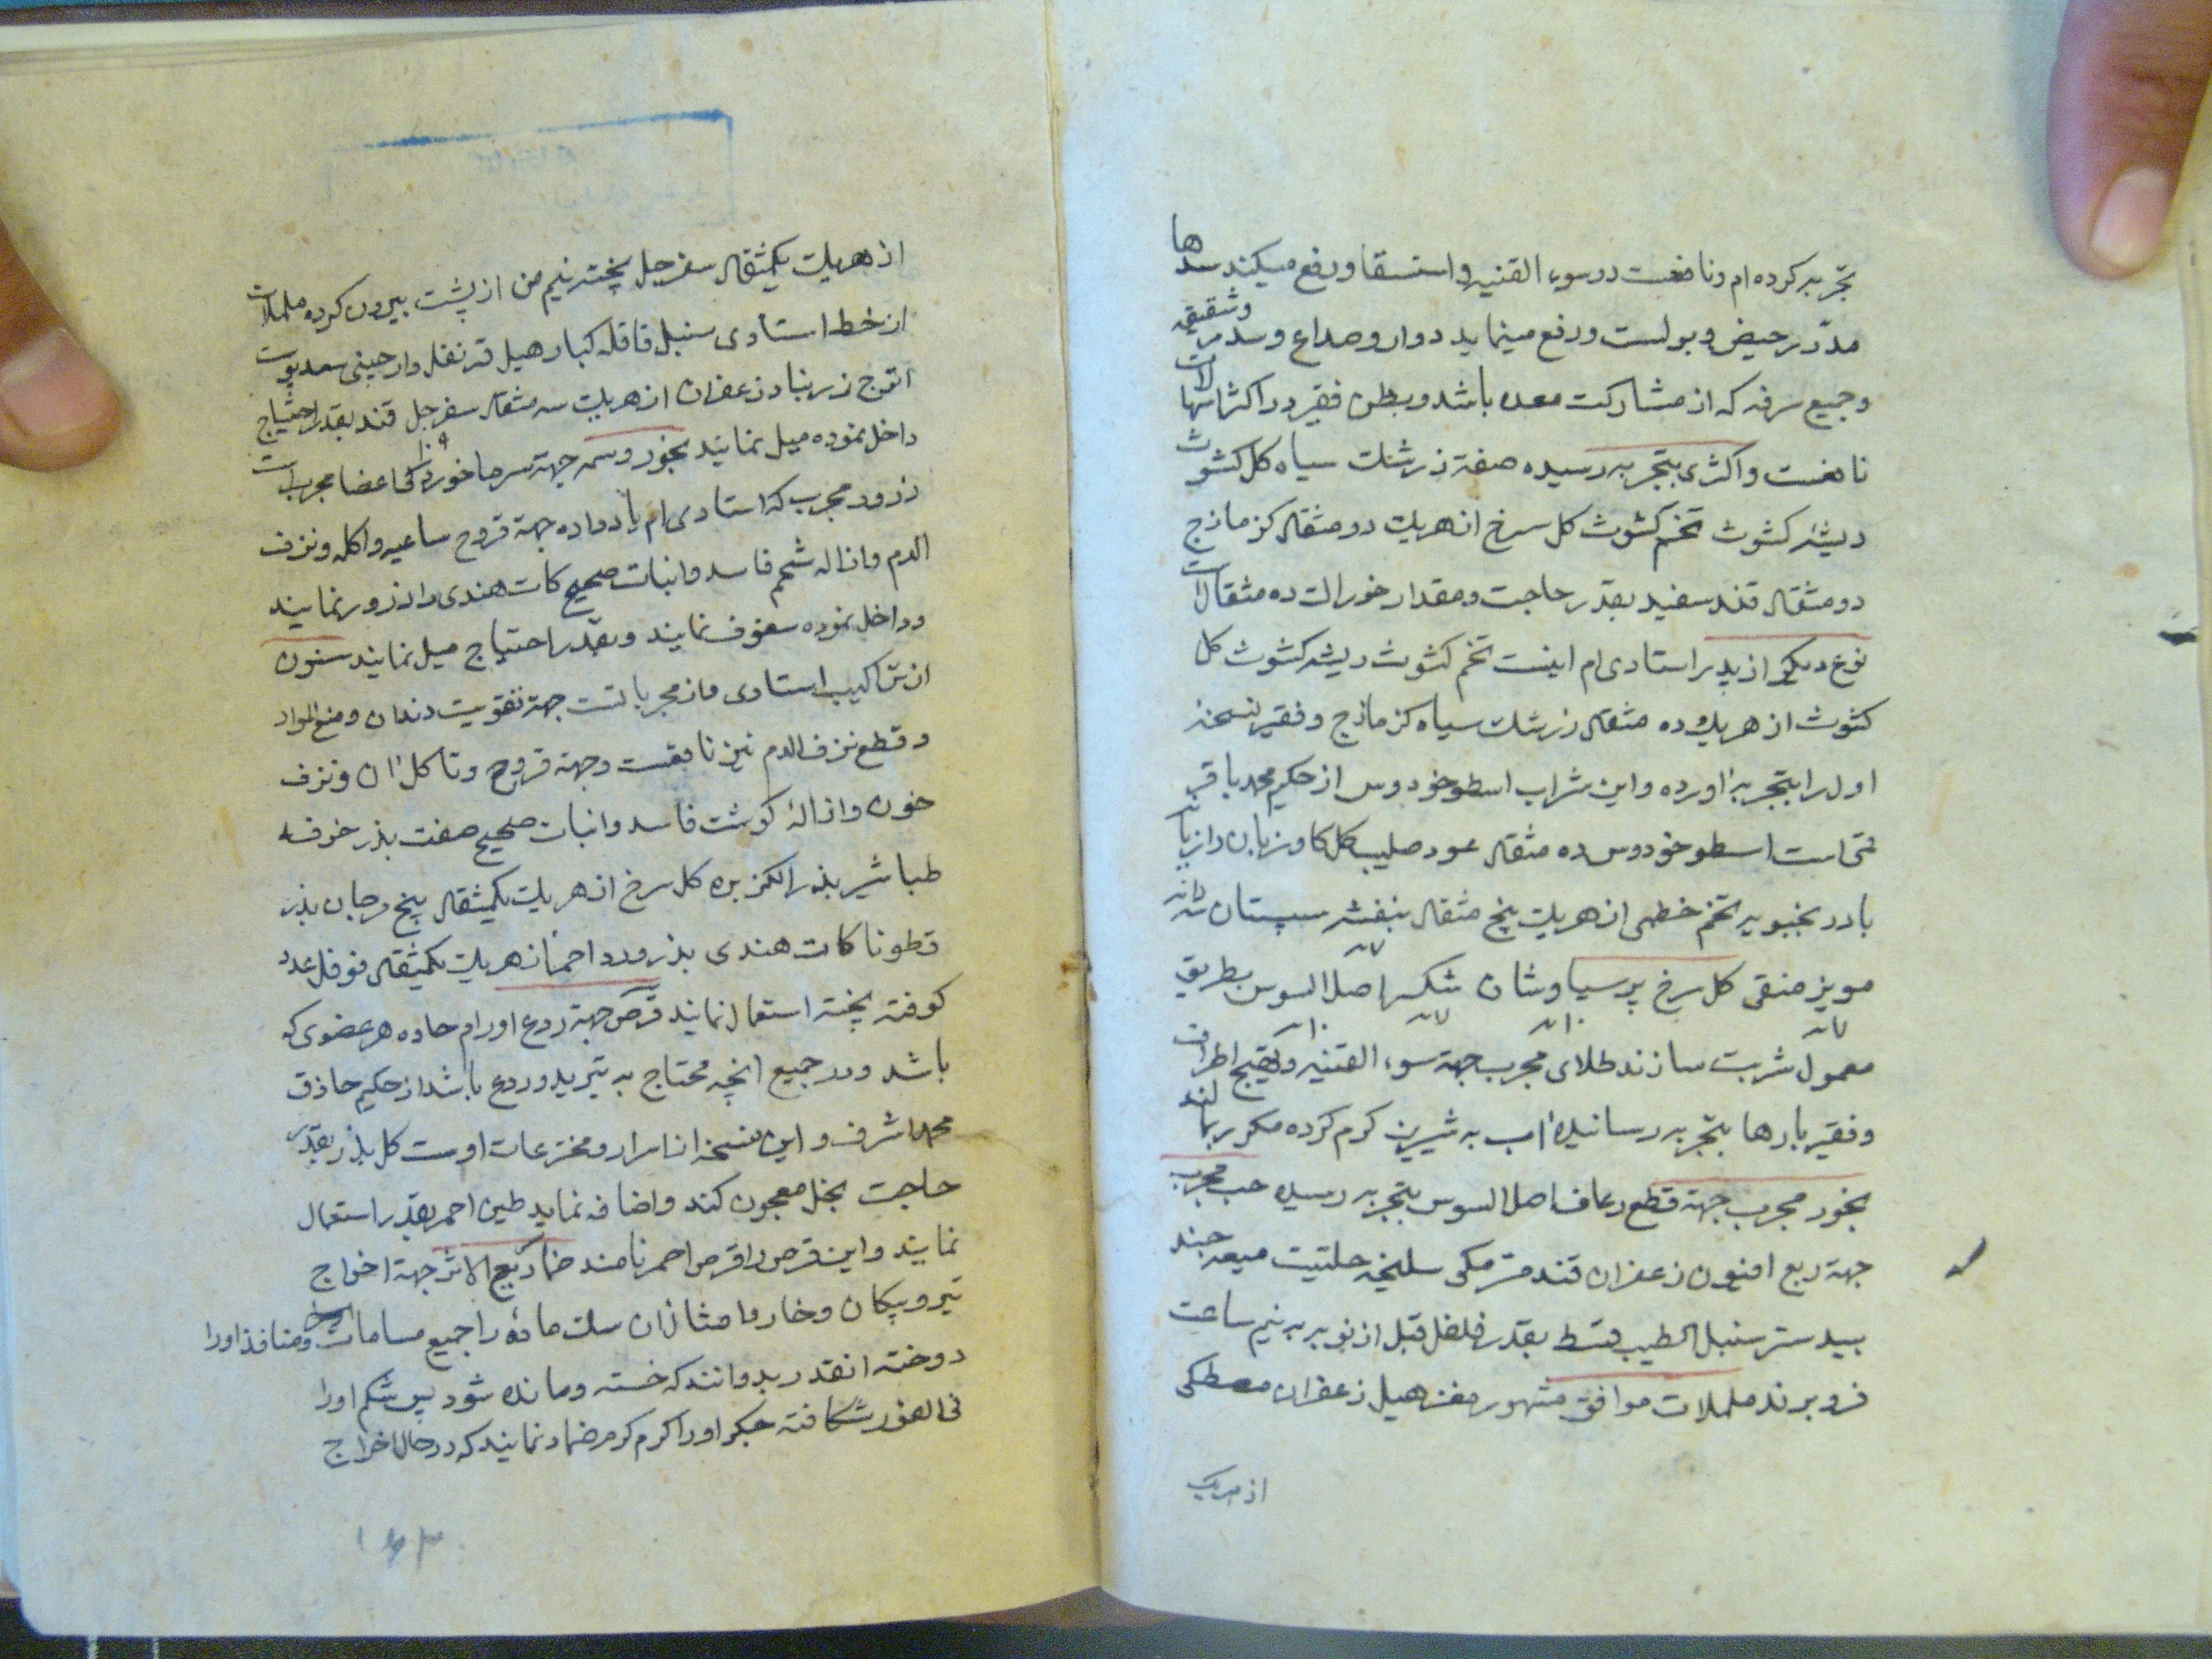 تجربه کرده ام و نافعست در سوء القنیه و استسقا و رفع میکند سدها
مدّر حیض و بولست و رفع مینماید دوار و صداع و سدر و شقیقه
و جمیع سرفه که از مشارکت معده باشد و بظن فقیر در اکثر اینها
نافعست و اکثری بتجربه رسیده صفة زرشک سیاه کل کشوث
ریشه کشوث تخم کشوث کل سرخ از هریک دو مثقال کزمازج
دو مثقال قند سفید بقدر حاجت و مقدار خوراک ده مثقال
نوع دیکر از پدر استادی ام اینست تخم کشوث ریشه کشوث کل
کشوث از هریک ده مثقال زرشک سیاه کزمازج و فقیر نسخهٔ
اول را بتجربه آورده و این شراب اسطوخودوس از حکیم محمد باقر
است اسطوخودوس ده مثقال عود صلیب کل کاوزبان رازیانه
بادرنجبویه تخم خطمی از هریک پنج مثقال بنفشه سپستان
مویز منقی کل سرخ پرسیاوشان شکر اصل السوس بطریق
معمول شربت سازند طلای مجرب جهة سوء القنیه و تهیج اطراف
و فقیر بارها بتجربه رسانیده آب به شیرین کرم کرده مکرر بمالند
بخور مجرب جهة قطع رعاف اصل السوس بتجربه رسیده حب مجرب
جهة ربع افیون زعفران قند مر مکی سلیخه حلتیت میعه جند
بیدستر سنبل الطیب قسط بقدر فلفل قبل از نوبه به نیم ساعت
فرو برند ململات موافق مشهور مغز هیل زعفران مصطکی
از هریک
از هریک یکمثقال سفرجل پخته نیم من از پشت بیرون کرده ململات
از خط استادی سنبل قاقله کبار هیل قرنفل دارچینی سعد پوست
اترج زرنباد زعفران از هریک سه مثقال سفرجل قند بقدر احتیاج
داخل نموده میل نمایند بخور وسمه جهة سرما خوردکی اعضا مجربست
ذرور مجرب که استادی ام یاد داده جهة قروح ساعیه و اکله و نزف
الدم و ازاله شحم فاسد و انبات صحیح کات هندی را ذرور نمایند
و داخل نموده سفوف نمایند و بقدر احتیاج میل نمایند سنون
از تراکیب استادی و از مجرباتست جهة تقویت دندان و منع المواد
و قطع نزف الدم نیز نافعست و جهة قروح و تاکل آن و نزف
خون و ازالهٔ کوشت فاسد و انبات صحیح صفت بذر خرفه
طباشیر بذر الکزبره کل سرخ از هریک یکمثقال بیخ مرجان بذر
قطونا کات هندی بذر ورد احمر از هریک یکمثقال فوفل عدد
کوفته پخته استعمال نمایند قرص جهة ردع اورام حاده هر عضوی که
باشد و در جمیع انچه محتاج به تبرید و ردع باشد از حکیم حاذق
محمد اشرف و این نسخه از اسرار و مخترعات اوست کل بذر بقدر
حاجت بخل معجون کند و اضافه نماید طین احمر بقدر استعمال
نمایند و این قرص را قرص احمر نامند ضماد سریع الاثر جهة اخراج
تیر و پیکان و خار و امثال آن سک ماده را جمیع مسامات و منافذ او را
دوخته انقدر بدوانند که خسته و مانده شود پس شکم او را
فی الفور شکافته جکر او را کرم کرم ضماد نمایند که در حال اخراج